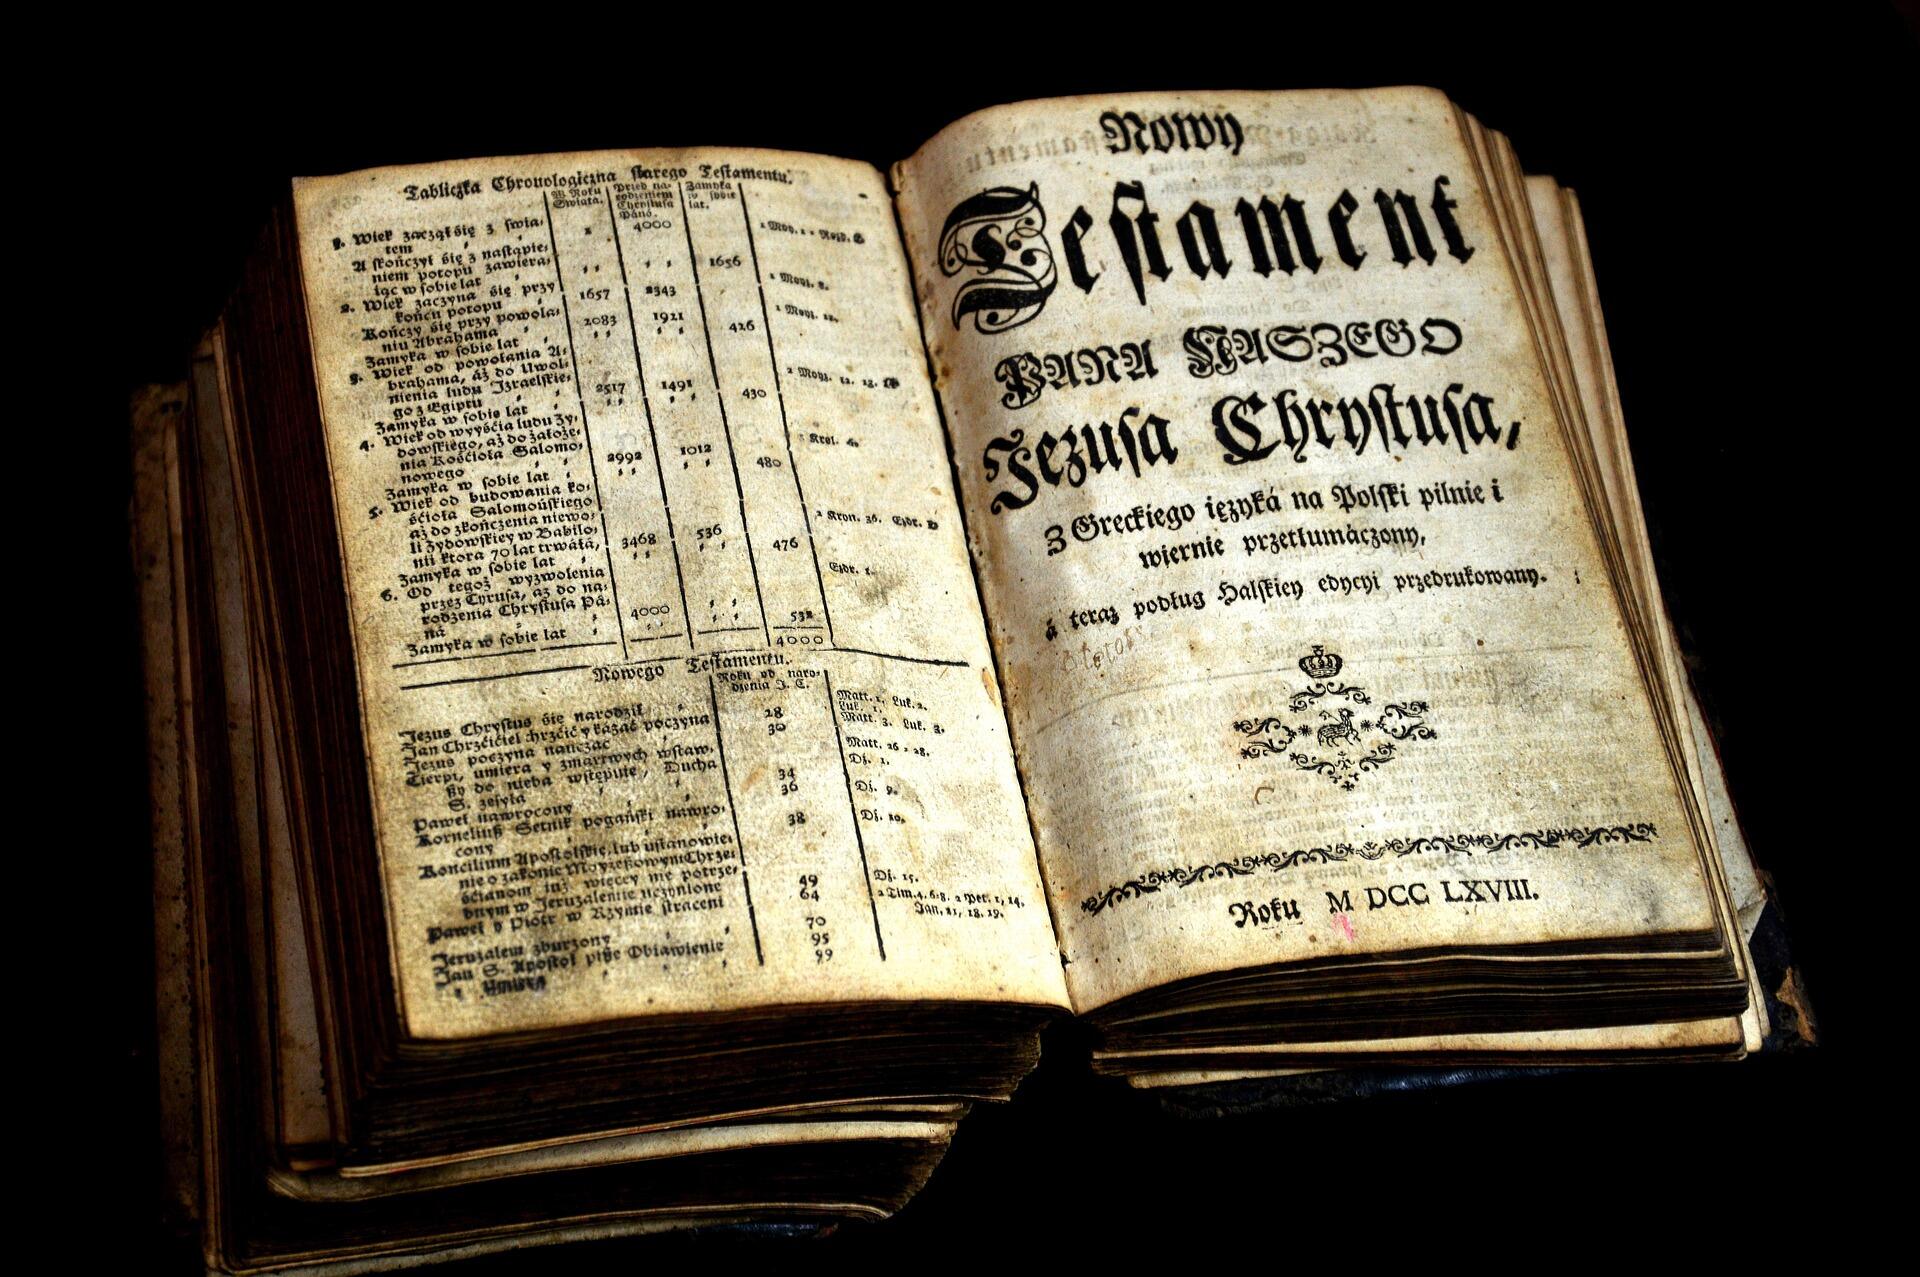 Tabliczka Chronologiczna starego Testamentu.
W Roku Swiata.
Przed narodzeniem Chrystusa Pána.
Zamyka w sobie lat.
1. Wiek zacząłsię z świa-
tem 1 4000 1 Moy. 1.
A skończył się z nastąpie-
niem potopu zawiera-
iąc w sobie lat 1656 1 Moyż. 8.
2. Wiek zaczyna się przy
końcu potopu 1657 2343
Kończy się przy powoła-
niu Abrahama 2083 1921 1 Moyż. 12.
Zamyka w sobie lat 426
3. Wiek od powołania A-
brahama, áż do Uwol-
nienia ludu Izraelskie-
go z Egiptu 2517 1491 2 Moyż. 12. 13.
Zamyka w sobie lat 430
4. Wiek od wyyścia ludu Zy-
dowskiego, aż do założe-
nia Kościoła Salomo-
nowego 2992 1012 Krol. 6.
Zamyka w sobie lat 480
5. Wiek od budowania ko-
ścioła Salomońskiego
aż do zkończenia niewo-
li Zydowskiey w Babilo-
nii ktora 70 lat trwáła, 3468 536 2 Kron. 36. Ezdr.
Zamyka w sobie lat 476
6. Od tegoż wyzwolenia
przez Cyrusa, aż do na-
rodzenia Chrystusa Pá-
ná 4000 Ezdr. 1.
Zamyka w sobie lat 532
4000
Nowego Testamentu.
Roku od naro-
dzenia J. C.
Jezus Chrystus się narodził Matt. 1, Luk. 2.
Jan Chrzciciel chrzcić y kázać poczyna 28 Luk. 1, Matt. 3. Luk. 3.
Jezus poczyna nauczać 30
Cierpi, umiera y zmartwych wstaw-
szy do nieba wstępuie, Ducha
S. zesyła 34 Matt. 26 - 28. Dz. 1.
Paweł nawrocony 36 Dz. 9.
Korneliusz Setnik pogański nawro-
cony 38 Dz. 10.
Koncilium Apostolskie, lub ustanowie-
nie o zakonie MoyżeszowymChrze-
ścianom iuż więcey nie potrze-
bnym w Jeruzalemie uczynione 49 Dz. 15.
Paweł y Piotr w Rzymie straceni 64 2 Tim. 4. 6-8. 2 Pet. 1, 14.
Jan. 21, 18. 19.
Jeruzalem zburzony 70
Jan S. Apostoł pisze Obiawienie 95
Umiera 99
Nowy
Testament
PANA NASZEGO
Jezusa Chrystusa,
Z Greckiego ięzyká na Polski pilnie i
wiernie przetłumáczony,
á teraz podług Halskiey edycyi przedrukowany.
Roku M DCC LXVIII.